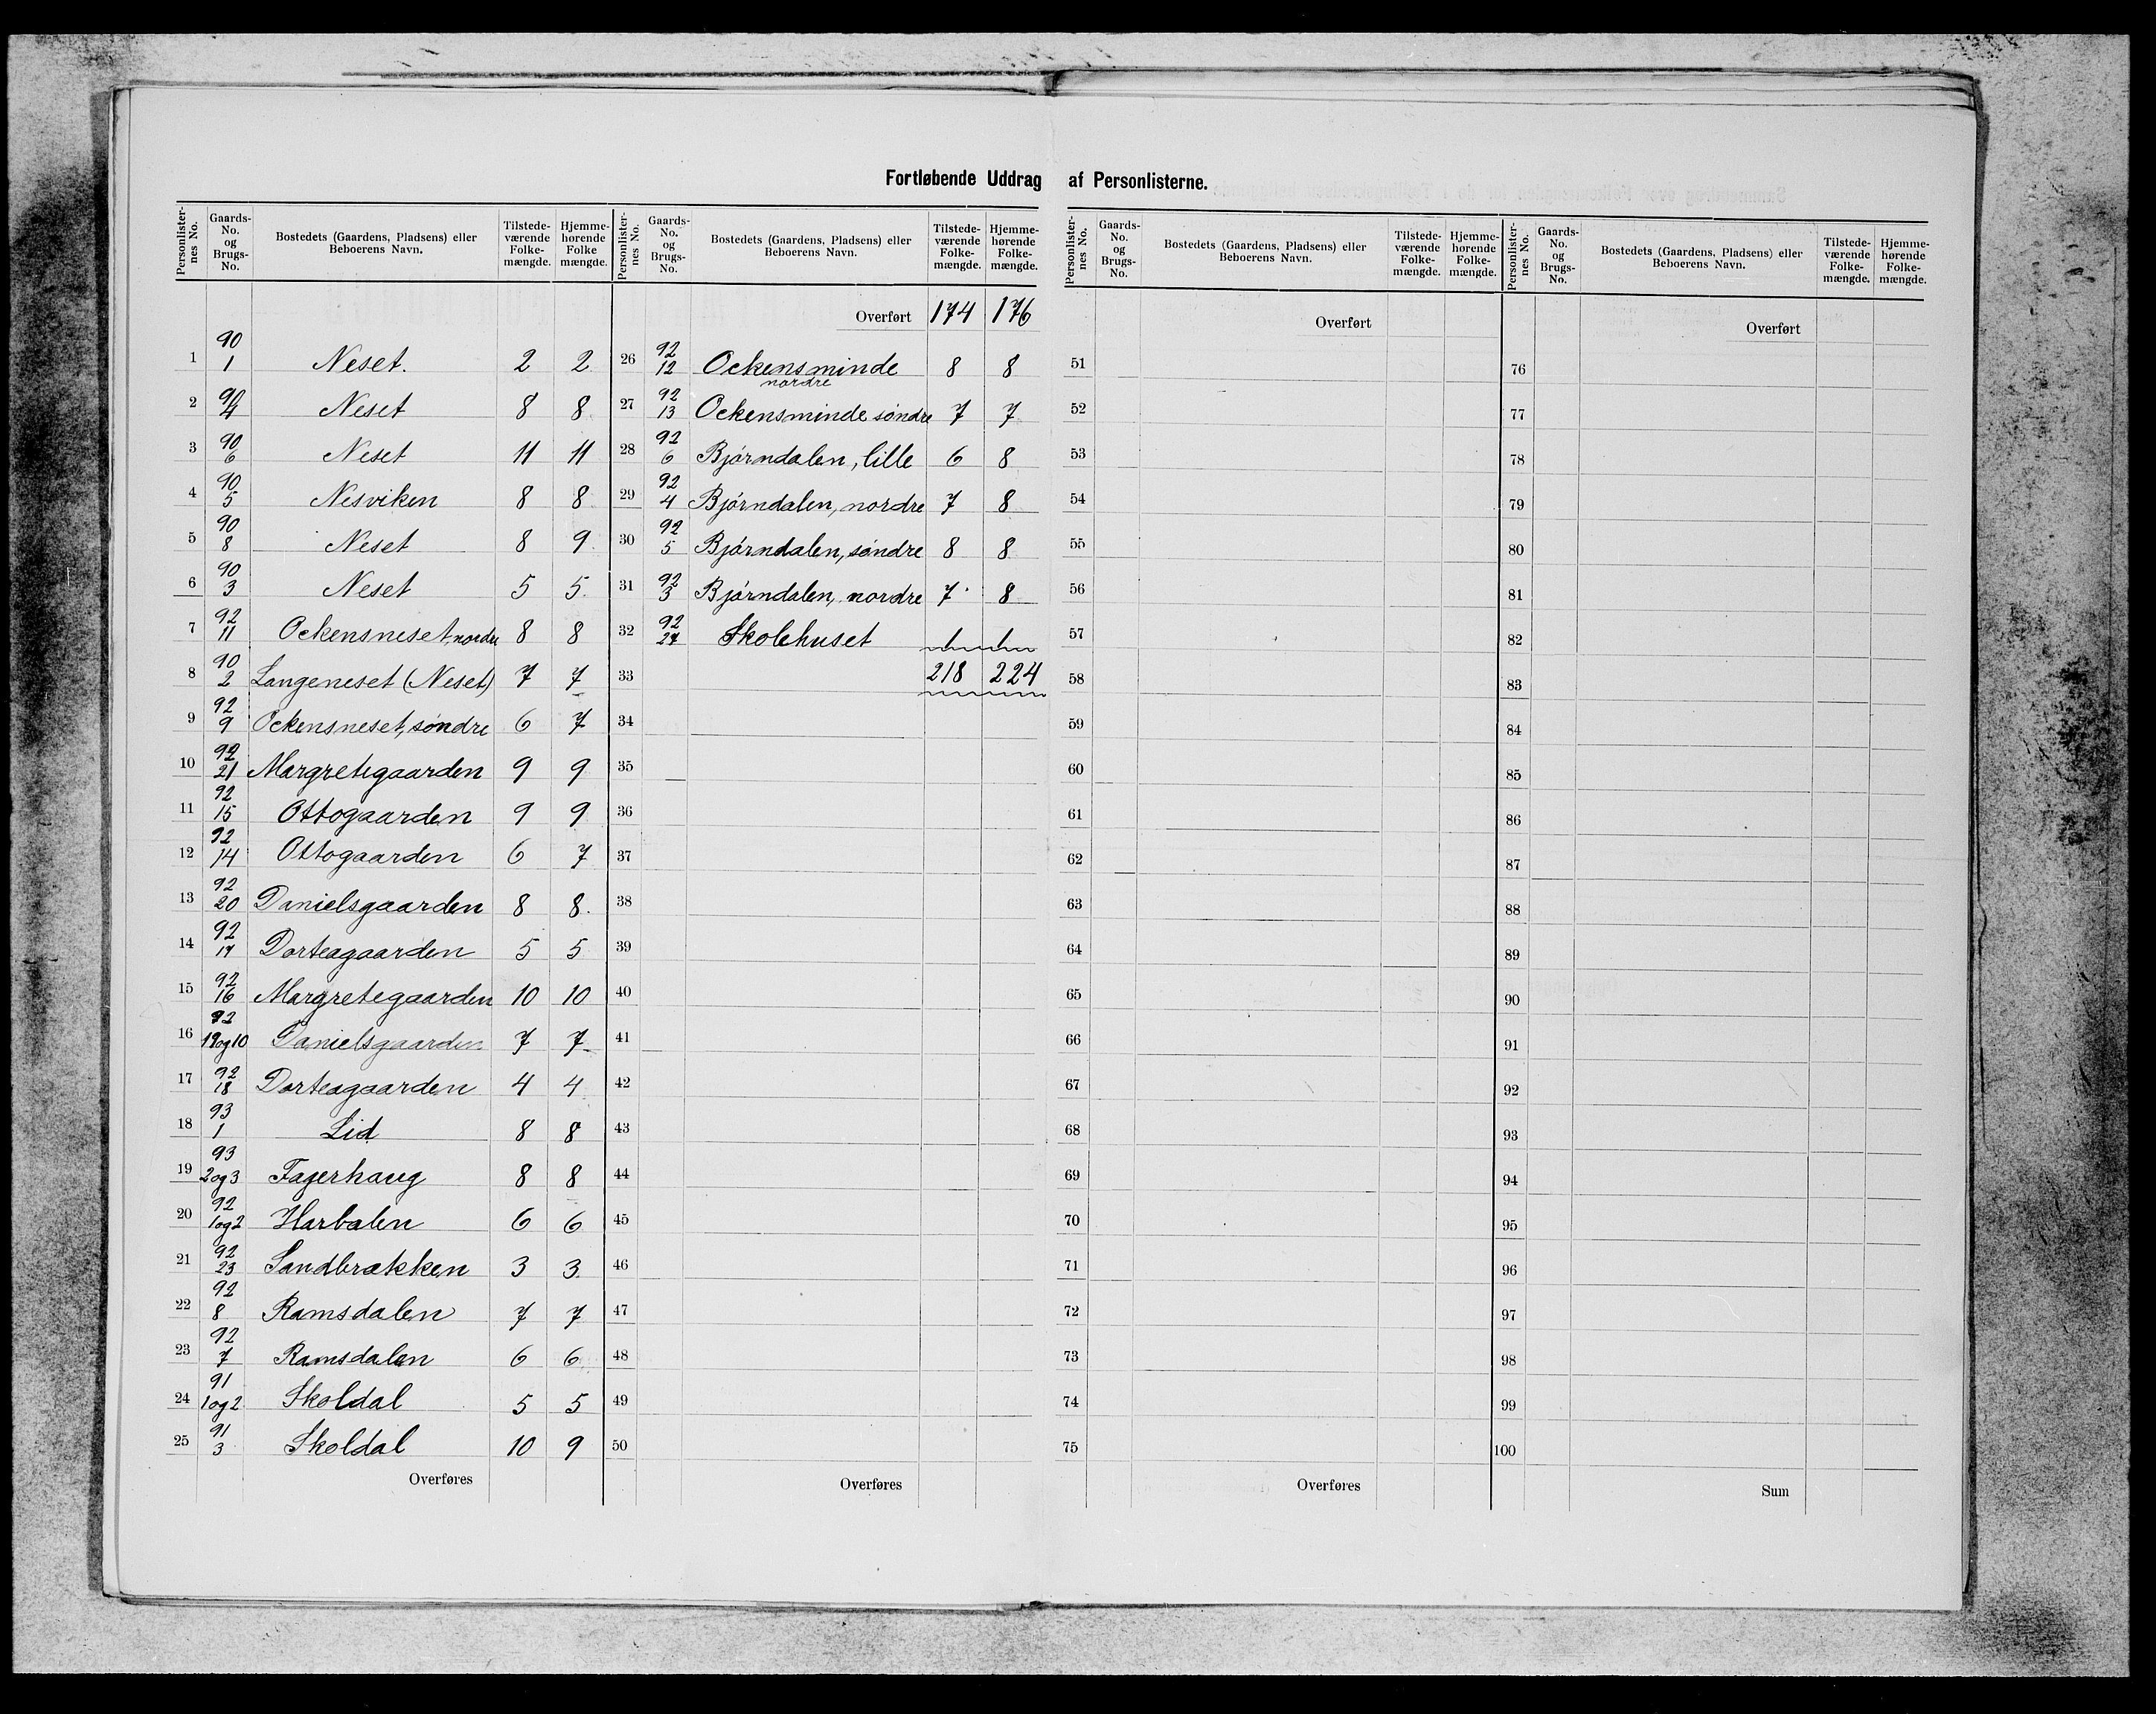 Fortløbende Uddrag af Personlisterne.
Personlister-nes No. | Gaards-No. og Brugs-No. | Bostedets (Gaardens, Pladsens) eller Beboerens Navn. | Tilstede-værende Folke-mængde. | Hjemme-hørende Folke mængde.
1 90/1 Neset. 2 2
2 90/4 Neset 8 8
3 90/6 Neset 11 11
4 90/5 Nesviken 8 8
5 90/8 Neset 8 9
6 90/3 Neset 5 5
7 92/11 Ockensneset, nordre 8 8
8 90/2 Langeneset (Neset) 7 7
9 92/9 Ockensneset, søndre 6 7
10 92/21 Margretegaarden 9 9
11 92/15 Ottogaarden 9 9
12 92/14 Ottogaarden 6 7
13 92/20 Danielsgaarden 8 8.
14 92/17 Dorteagaarden 5 5
15 92/16 Margretegaarden 10 10
16 92/19 og 10 Danielsgaarden 7 7
17 92/18 Dorteagaarden 4 4
18 93/1 Lid 8 8
19 93/2 og 3 Fagerhaug 8 8
20 92/1 og 2 Harbalen 6 6
21 92/23 Sandbrækken 3 3
22 92/8 Ramsdalen 7 7
23 92/7 Ramsdalen 6 6
24 91/1 og 2 Skoldal 5 5
25 91/3 Skoldal 10 9
Overføres
Personlister-nes No. | Gaards-No. og Brugs-No. | Bostedets (Gaardens, Pladsens) eller Beboerens Navn. | Tilstede-værende Folke-mængde. | Hjemme-hørende Folke-mængde.
Overført 174 176
26 92/12 Ockensminde nordre 8 8
27 92/13 Ockensminde søndre 7 7
28 92/6 Bjørndalen, lille 6 8
29 92/4 Bjørndalen, nordre 7 8
30 92/5 Bjørndalen, søndre 8 8
31 92/3 Bjørndalen, nordre 7 8
32 92/27 Skolehuset 1 1
33 218 224
34
35
36
37
38
39
40
41
42
43
44
45
46
47
48
49
50
Overføres
Personlister-nes No. | Gaards-No. og Brugs-No. | Bostedets (Gaardens, Pladsens) eller Beboerens Navn. | Tilstede-værende Folke-mængde. | Hjemme-hørende Folke-mængde.
Overført
51
52
53
54
55
56
57
58
59
60
61
62
63
64
65
66
67
68
69
70
71
72
73
74
75
Overføres
Personlister-nes No. | Gaards-No. og Brugs-No. | Bostedets (Gaardens, Pladsens) eller Beboerens Navn. | Tilstede-værende Folke-mængde. | Hjemme-hørende Folke-mængde.
Overført
76
77
78
79
80
81
82
83
84
85
86
87
88
89
90
91
92
93
94
95
96
97
98
99
100
Sum